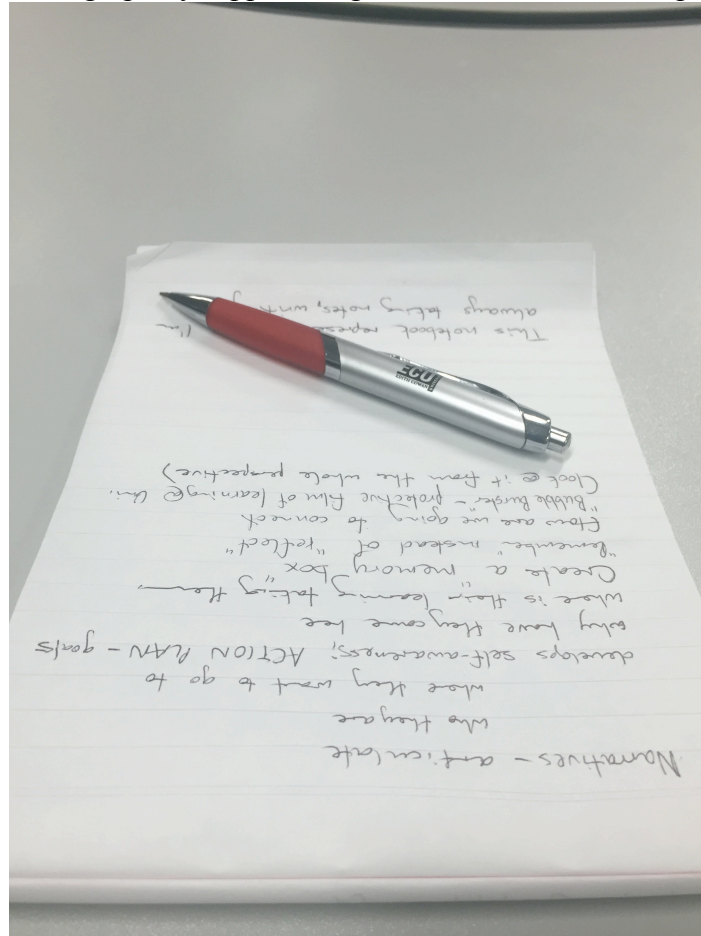 Narratives - articulate
who they are
where they want to go to
develops self-awareness; ACTION PLAN - goals
why have they come here
where is their learning taking them
Create a "memory box"
"Remember" instead of "reflect"
How are we going to connect
"Bubble Burster" - protective film of learning @ Uni.
(look @ it from the whole perspective)
This notebook I'm
always taking notes,
ECU
EDITH COWAN